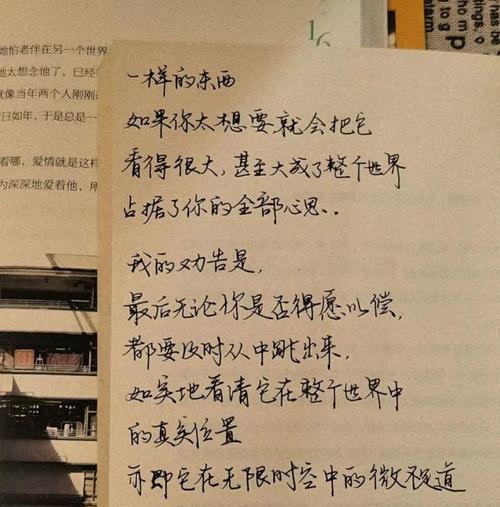 怕老伴在另一个世界
太想念他了，已经
就像当年两个人刚刚
日如年，于是总是一
看哪，爱情就是这样
为深深地爱着他，所
16
has be
ings, o
omo m
g to g
alarm
一样的东西
如果你太想要就会把它
看得很大，甚至大成了整个世界
占据了你的全部心思..
我的劝告是，
最后无论你是否得愿以偿，
都要及时从中跳出来，
如实地看清它在整个世界中
的真实位置
亦即它在无限时空中的微不足道